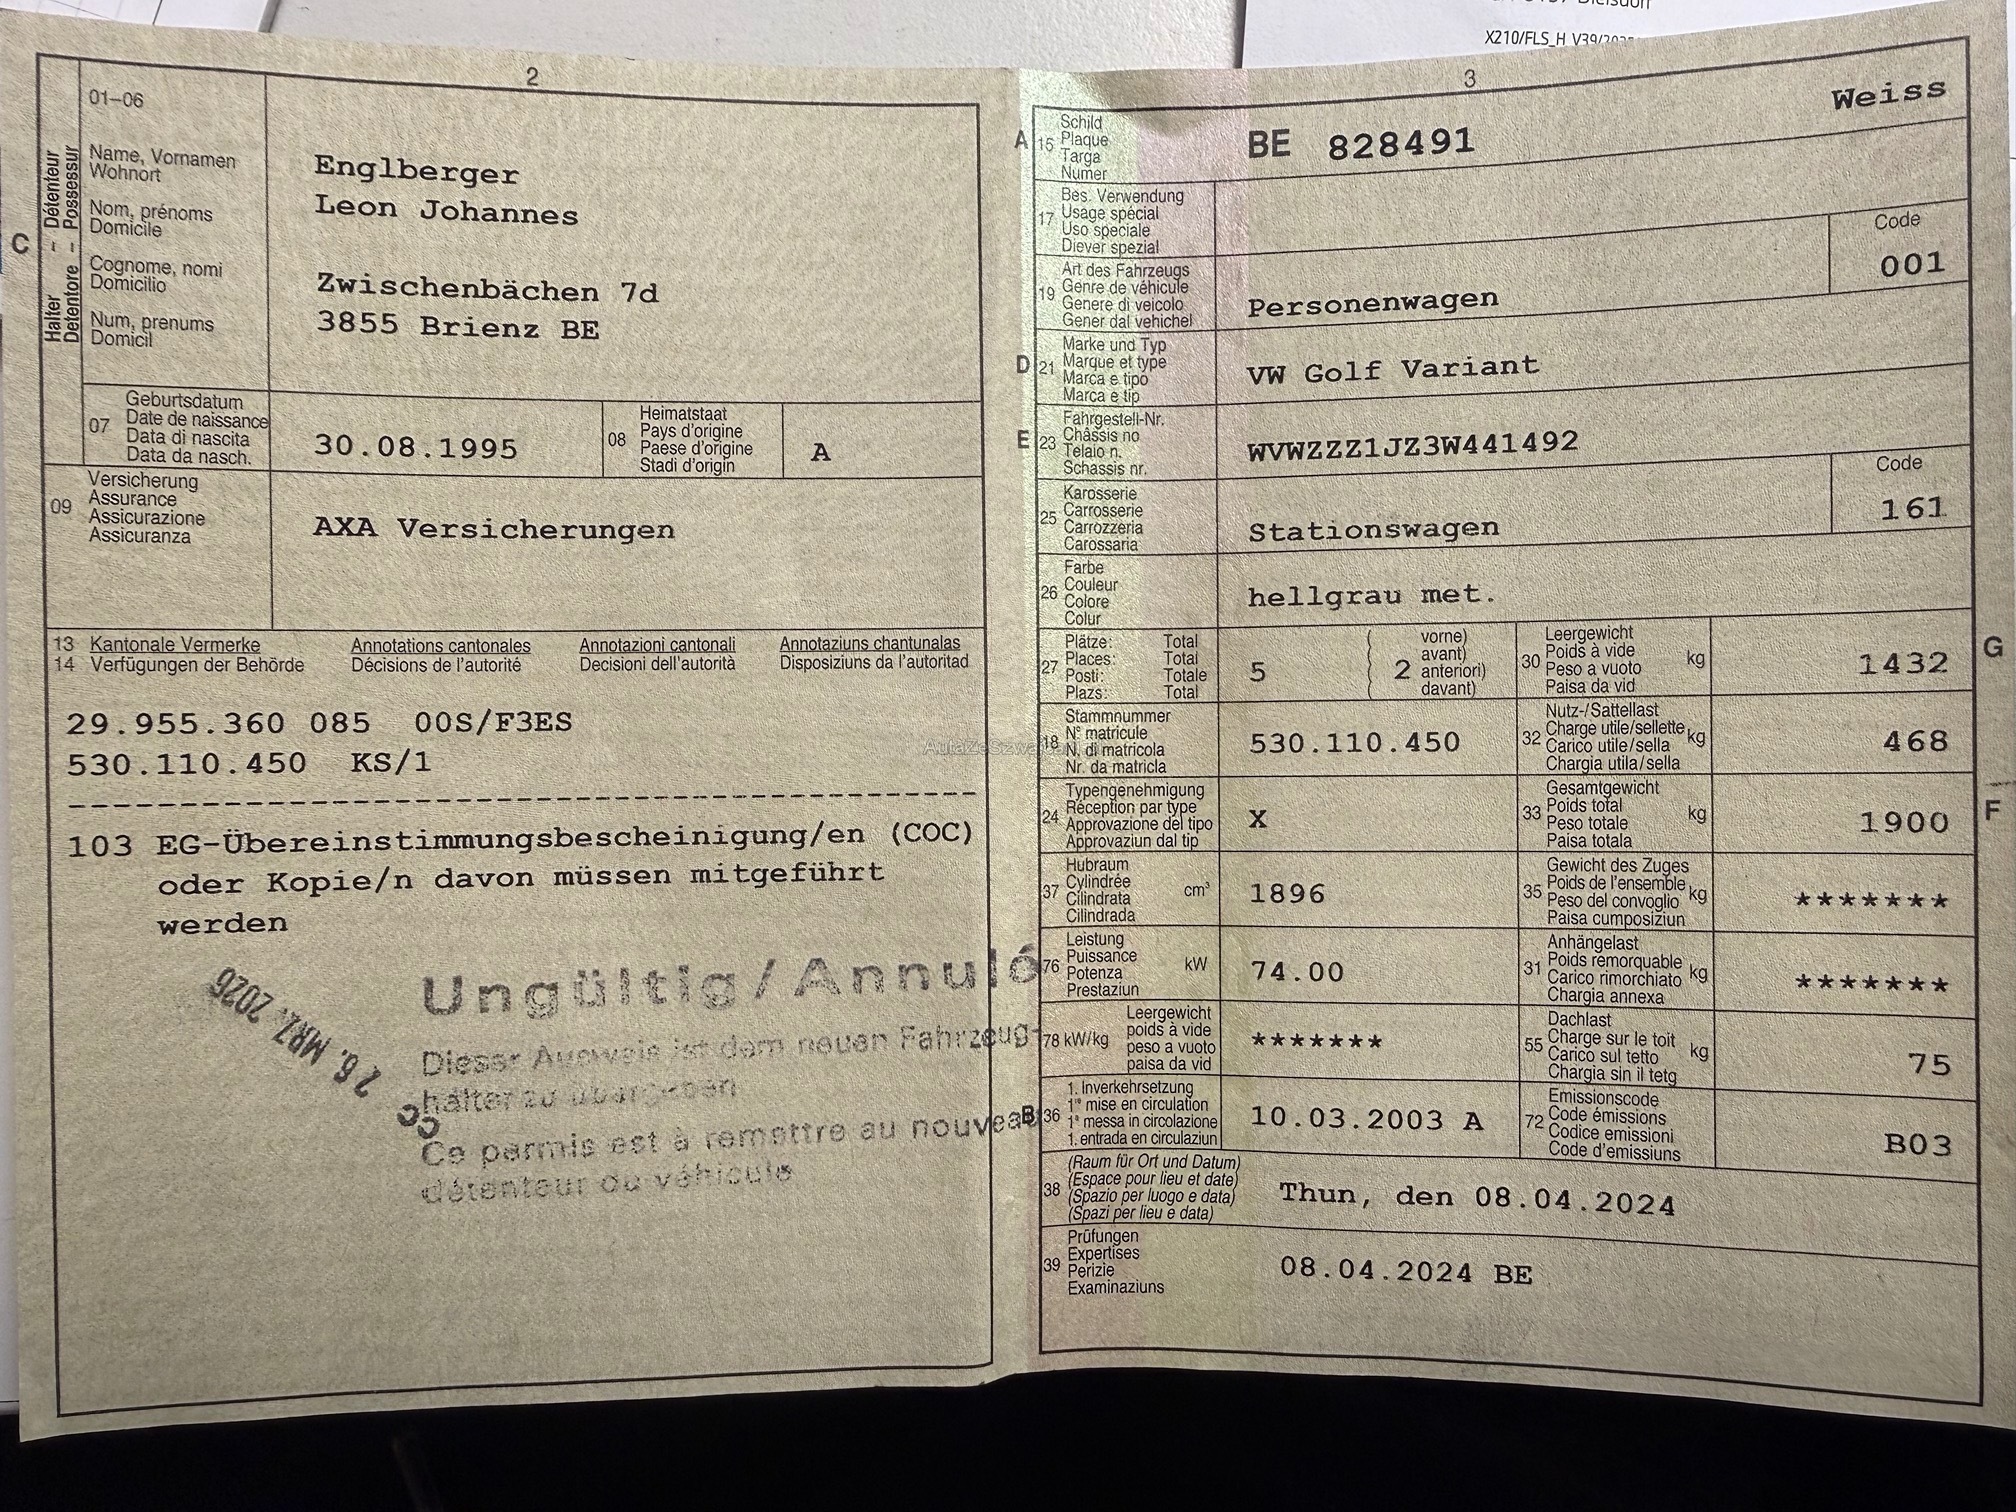 X210/FLS_H V39/
2
01–06
Halter – Détenteur
Detentore – Possessur
C
Name, Vornamen
Wohnort
Nom, prénoms
Domicile
Cognome, nomi
Domicilio
Num, prenums
Domicil
Englberger
Leon Johannes
Zwischenbächen 7d
3855 Brienz BE
07
Geburtsdatum
Date de naissance
Data di nascita
Data da nasch.
30.08.1995
08
Heimatstaat
Pays d'origine
Paese d'origine
Stadi d'origin
A
09
Versicherung
Assurance
Assicurazione
Assicuranza
AXA Versicherungen
13 Kantonale Vermerke Annotations cantonales Annotazioni cantonali Annotaziuns chantunalas
14 Verfügungen der Behörde Décisions de l'autorité Decisioni dell'autorità Disposiziuns da l'autoritad
29.955.360 085 00S/F3ES
530.110.450 KS/1
103 EG-Übereinstimmungsbescheinigung/en (COC)
oder Kopie/n davon müssen mitgeführt
werden
26. MRZ. 2026
Ungültig / Annulé
Dieser Ausweis ist dem neuen Fahrzeug-
halter zu übergeben
Ce permis est à remettre au nouveau
détenteur du véhicule
3
Weiss
A
15
Schild
Plaque
Targa
Numer
BE 828491
17
Bes. Verwendung
Usage spécial
Uso speciale
Diever spezial
19
Art des Fahrzeugs
Genre de véhicule
Genere di veicolo
Gener dal vehichel
Personenwagen
Code
001
D
21
Marke und Typ
Marque et type
Marca e tipo
Marca e tip
VW Golf Variant
E
23
Fahrgestell-Nr.
Châssis no
Telaio n.
Schassis nr.
WVWZZZ1JZ3W441492
25
Karosserie
Carrosserie
Carrozzeria
Carossaria
Stationswagen
Code
161
26
Farbe
Couleur
Colore
Colur
hellgrau met.
27
Plätze: Total
Places: Total
Posti: Totale
Plazs: Total
5
2
vorne)
avant)
anteriori)
davant)
30
Leergewicht
Poids à vide
Peso a vuoto
Paisa da vid
kg
1432
G
18
Stammnummer
N° matricule
N. di matricola
Nr. da matricla
530.110.450
32
Nutz-/Sattellast
Charge utile/sellette
Carico utile/sella
Chargia utila/sella
kg
468
24
Typengenehmigung
Réception par type
Approvazione del tipo
Approvaziun dal tip
X
33
Gesamtgewicht
Poids total
Peso totale
Paisa totala
kg
1900
F
37
Hubraum
Cylindrée
Cilindrata
Cilindrada
cm³
1896
35
Gewicht des Zuges
Poids de l'ensemble
Peso del convoglio
Paisa cumposiziun
kg
*******
76
Leistung
Puissance
Potenza
Prestaziun
kW
74.00
31
Anhängelast
Poids remorquable
Carico rimorchiato
Chargia annexa
kg
*******
78 kW/kg
Leergewicht
poids à vide
peso a vuoto
paisa da vid
*******
55
Dachlast
Charge sur le toit
Carico sul tetto
Chargia sin il tetg
kg
75
B
36
1. Inverkehrsetzung
1re mise en circulation
1a messa in circolazione
1. entrada en circulaziun
10.03.2003 A
72
Emissionscode
Code émissions
Codice emissioni
Code d'emissiuns
B03
38
(Raum für Ort und Datum)
(Espace pour lieu et date)
(Spazio per luogo e data)
(Spazi per lieu e data)
Thun, den 08.04.2024
39
Prüfungen
Expertises
Perizie
Examinaziuns
08.04.2024 BE